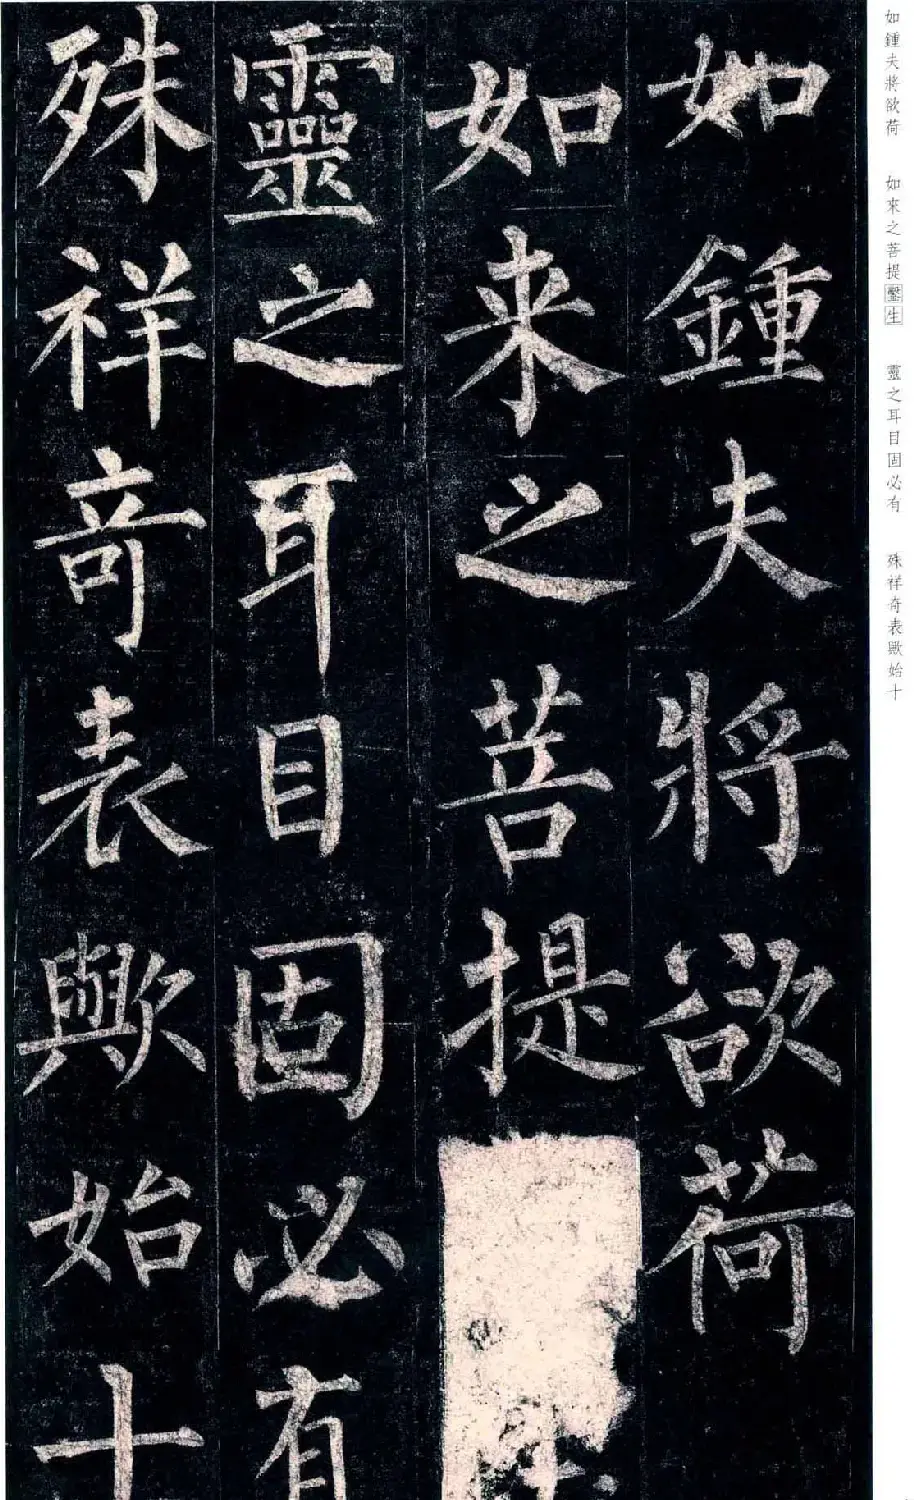 如鍾夫將欲荷
如来之菩提
靈之耳目固必有
殊祥奇表歟始十
如鍾夫將欲荷 如來之菩提鑿生 靈之耳目固必有 殊祥奇表歟始十